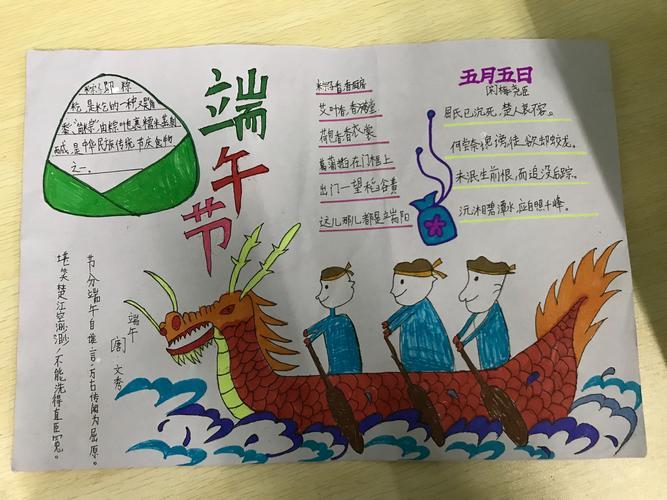 端午节
粽是粽的一种,又
粽",由粽叶包裹糯米蒸制
成,是中华民族传统节庆食物
之一。
粽子香,香厨房
艾叶香,香满堂
荷包香香衣裳
菖蒲插在门楣上
出门一望稻谷香
这儿那儿都是端阳
五月五日
梅尧臣
屈氏已沉死,楚人哀不容。
何尝奈谗谤,徒欲却蛟龙。
未泯生前恨,而追没后踪。
沉湘碧潭水,应自照千峰。
端午
文秀
节分端午自谁言,万古传闻为屈原。
堪笑楚江空渺渺,不能洗得直臣冤。